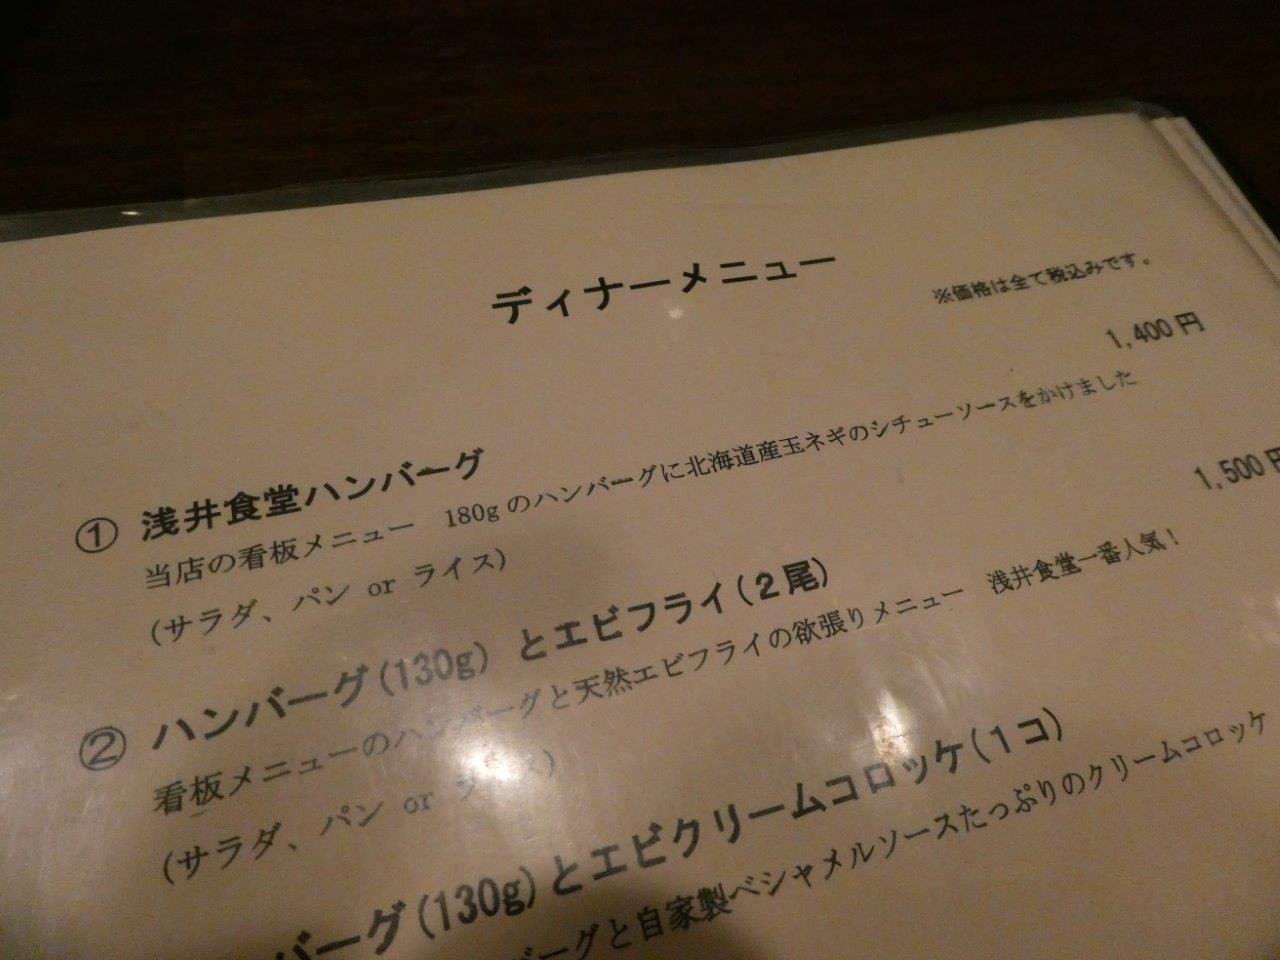 ディナーメニュー
※価格は全て税込みです。
1,400円
① 浅井食堂ハンバーグ
当店の看板メニュー 180gのハンバーグに北海道産玉ネギのシチューソースをかけました
(サラダ、パン or ライス)
1,500円
② ハンバーグ(130g) とエビフライ(2尾)
看板メニューのハンバーグと天然エビフライの欲張りメニュー 浅井食堂一番人気!
(サラダ、パン or ライス)
バーグ(130g)とエビクリームコロッケ(1コ)
バーグと自家製ベシャメルソースたっぷりのクリームコロッケ